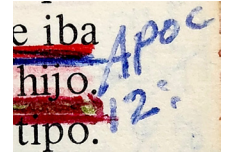 e iba
hijo.
tipo.
Apoc
12: